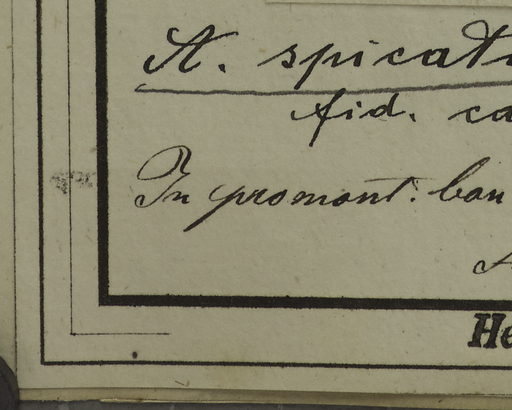 A. spicat
fid. ca
In promont. bon
He